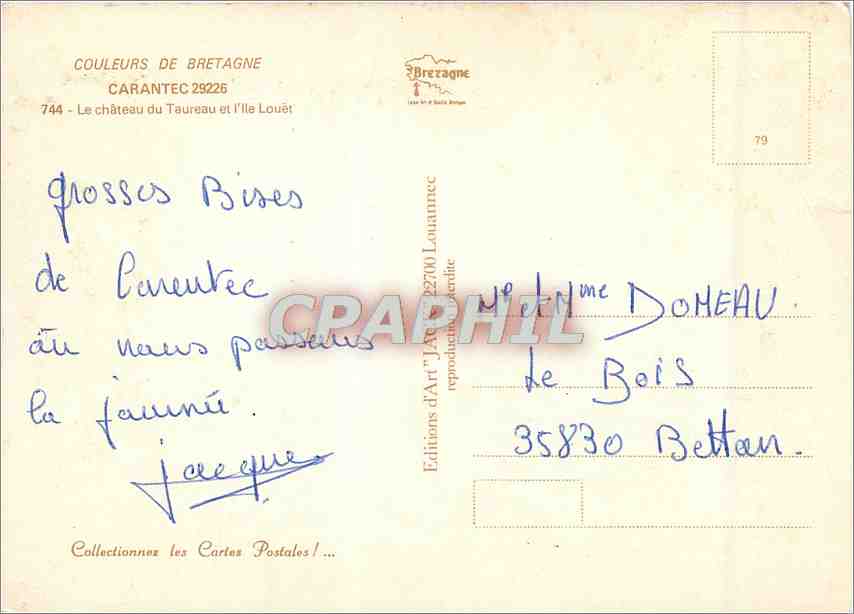 COULEURS DE BRETAGNE
CARANTEC 29226
744 - Le château du Taureau et l'Ile Louët
Bretagne
79
grosses Bises
de Carentec
où nous passons
la journée.
Jacques
Collectionnez les Cartes Postales ! ...
Editions d'Art "JACK" 22700 Louannec
reproduction interdite
CPAPHIL
Mr et Mme DOMEAU.
Le Bois
35830 Betton.